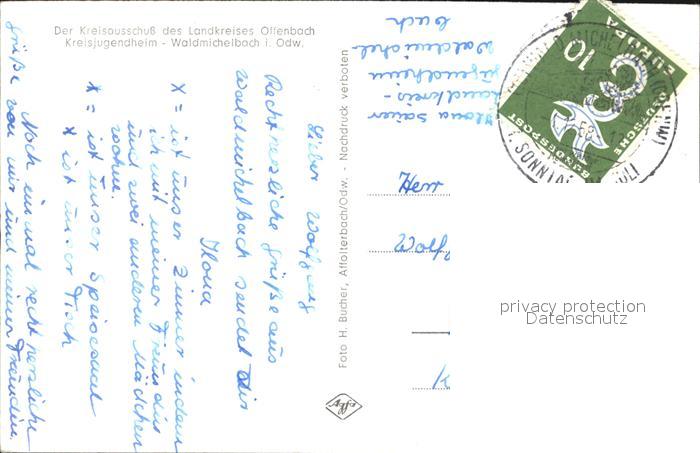 Der Kreisausschuß des Landkreises Offenbach
Kreisjugendheim - Waldmichelbach i. Odw.
Lieber Wolfgang
Recht herzliche Grüße aus
Waldmichelbach sendet Dir
Ilona
X = ist unser Zimmer indem
ich mit meiner Freundin
und zwei anderen Mädchen
wohne.
X = ist unser Speisesaal
X ist unser Tisch
Noch einmal recht herzliche
Grüße von mir und meiner Freundin.
Foto H. Bucher, Affolterbach/Odw. - Nachdruck verboten
Agfa
Ilona
Landkreis-
Jugendheim
Waldmichel-
bach
Herr
Wolf
EUROPA
10
DEUTSCHE
BUNDESPOST
SONNTAG
JULI
privacy protection
Datenschutz